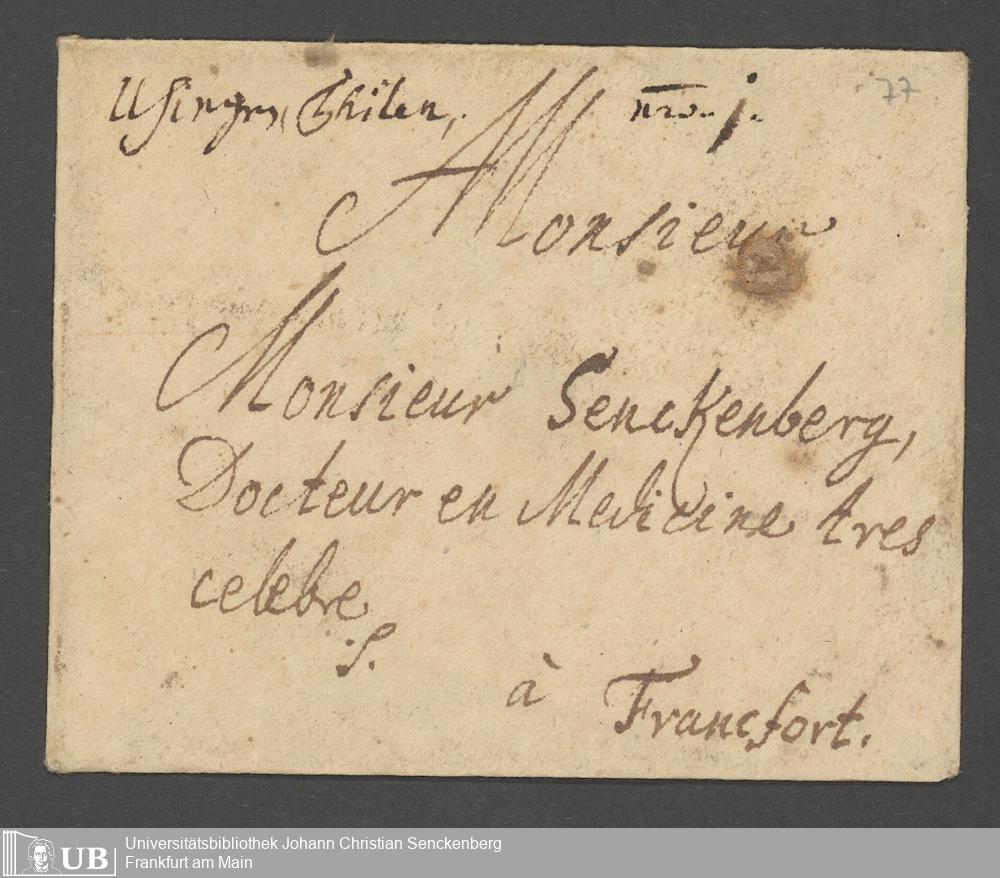 Usingen, Thilen, nro. 1.
77
Monsieur
Monsieur Senckenberg,
Docteur en Medicine tres
celebre
S.
à Francfort.
UB Universitätsbibliothek Johann Christian Senckenberg
Frankfurt am Main